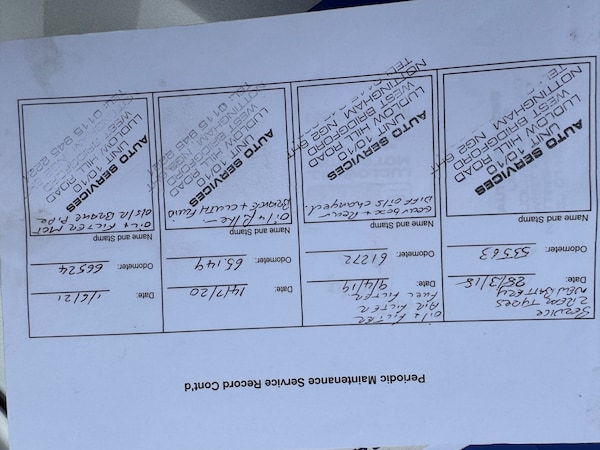 Periodic Maintenance Service Record Cont'd
SERVICE
2 REAR TYRES
NEW BATTERY
Date: 28/3/18
Odometer: 53563
Name and Stamp
AUTO SERVICES
UNIT 10/10
LUDLOW HILL ROAD
WEST BRIDGFORD
NOTTINGHAM NG2
OIL & FILTER
AIR FILTER
FUEL FILTER
Date: 9/4/19
Odometer: 61272
Name and Stamp
Gearbox + Rear
DIFF OILS changed.
AUTO SERVICES
UNIT 10/10
LUDLOW HILL ROAD
WEST BRIDGFORD
NOTTINGHAM NG2
Date: 14/7/20
Odometer: 65,149
Name and Stamp
Oil & Filter
BRAKE + CLUTCH FLUID
AUTO SERVICES
UNIT 10/10
LUDLOW HILL ROAD
WEST
Date: 1/6/21
Odometer: 66524
Name and Stamp
OIL & FILTER MOT
O/S/R BRAKE PIPE
AUTO SERVICES
UNIT 10/10
LUDLOW HILL ROAD
TEL: 0115 945